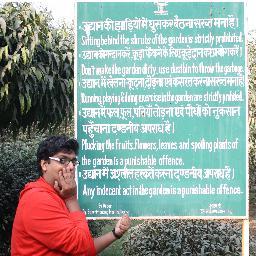 उद्यान की झाड़ियों में घुसकर बैठना सख्त मना है।
Sitting behind the shrubs of the garden is strictly prohibited.
उद्यान को गन्दा न करें, कूड़ा फेंकने के लिए कूड़ेदान का प्रयोग करें।
Don't make the garden dirty, use dustbin to throw the garbage.
उद्यान में खेलना, कूदना, दौड़ना एवं कसरत करना सख्त मना है
Running, playing & doing exercise in the garden are strictly prohibited.
उद्यान में फल, फूल, पत्तियाँ तोड़ना एवं पौधों को नुकसान
पहुँचाना दण्डनीय अपराध है।
Plucking the fruits, flowers, leaves and spoiling plants of
the garden is a punishable offence.
उद्यान में अश्लील हरकतें करना दण्डनीय अपराध है।
Any indecent act in the garden is a punishable offence.